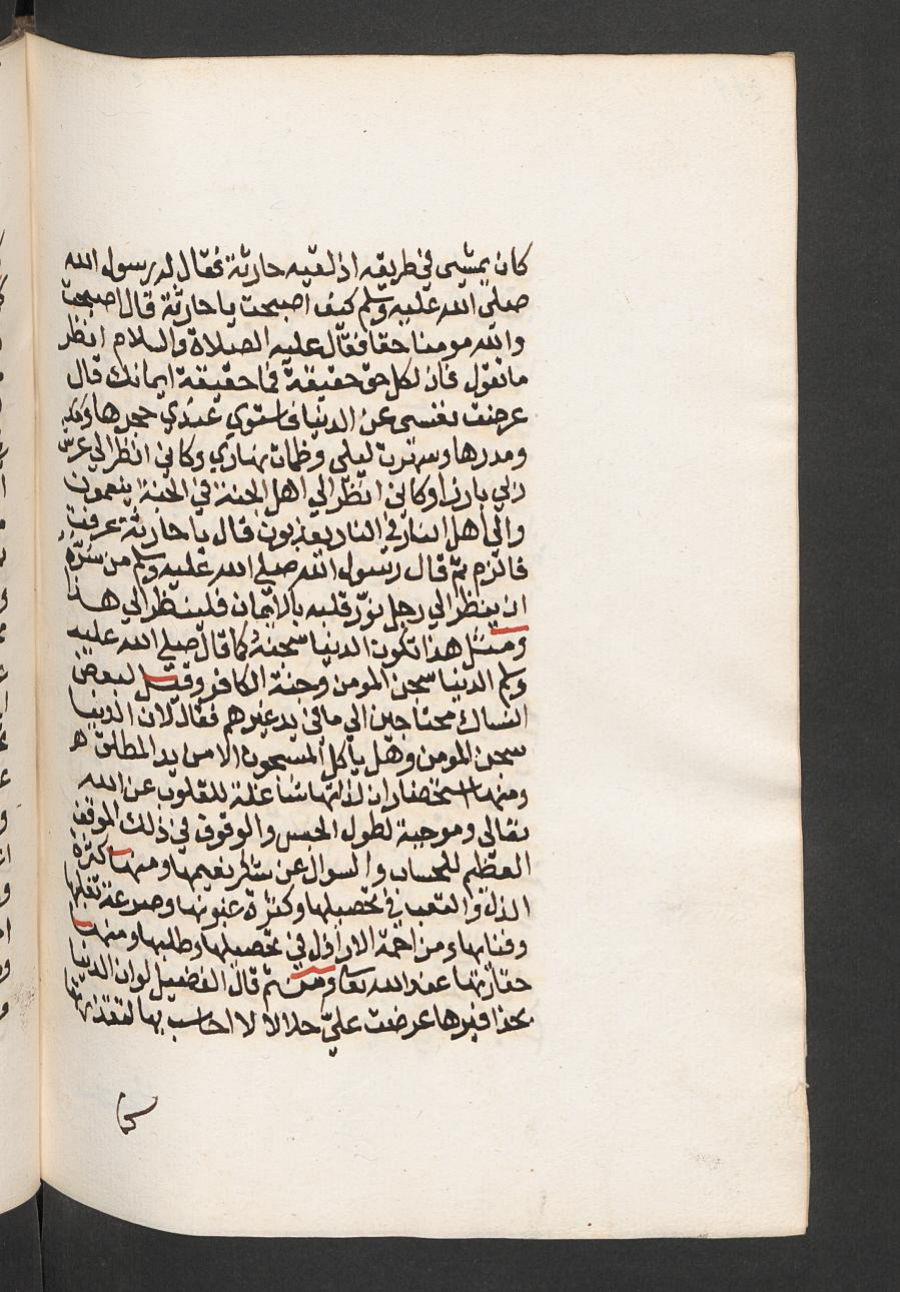 كان يمشي في طريقه اذ لقيه حارثة فقال له رسول الله
صلي الله عليه وسلم كيف اصبحت يا حارثة قال اصبحت
والله مومنا حقا فقال عليه الصلاة والسلام انظر
ما تقول فان لكل حق حقيقة فما حقيقة ايمانك قال
عرضت نفسي عن الدنيا فاستوي عندي حجرها
ومدرها وسهرت ليلي وظمات نهاري وكاني انظر الي عرش
ربي بارزا وكاني انظر الي اهل الجنة في الجنة ينعمون
والي اهل النار في النار يعذبون قال يا حارثة عرفت
فالزم ثم قال رسول الله صلي الله عليه وسلم من سره
ان ينظر الي رجل نور قلبه بالايمان فلينظر الي هذا
ومثل هذا تكون الدنيا سجنه كما قال صلي الله عليه
وسلم الدنيا سجن المومن وجنة الكافر وقيل لبعض
النساك محتاجين الي ما في يد غيرهم فقال لان الدنيا
سجن المومن وهل ياكل المسجون الا من يد المطلق ه
ومنها استحضار ان لذاتها شاغلة للقلوب عن الله
تعالي وموجبة لطول الحبس والوقوف في ذلك الموقف
العظيم للحساب والسوال عن شكر نعيمها ومنها كثرة
الذل والتعب في تحصيلها وكثرة غبونها وسرعة تقلبها
وفنايها ومزاحمة الاراذل في تحصيلها وطلبها ومنها
حقارتها عند الله تعا ومن ثم قال الفضيل لو ان الدنيا
بحذافيرها عرضت علي حلالا لا احاسب بها لتقذرتها
كما